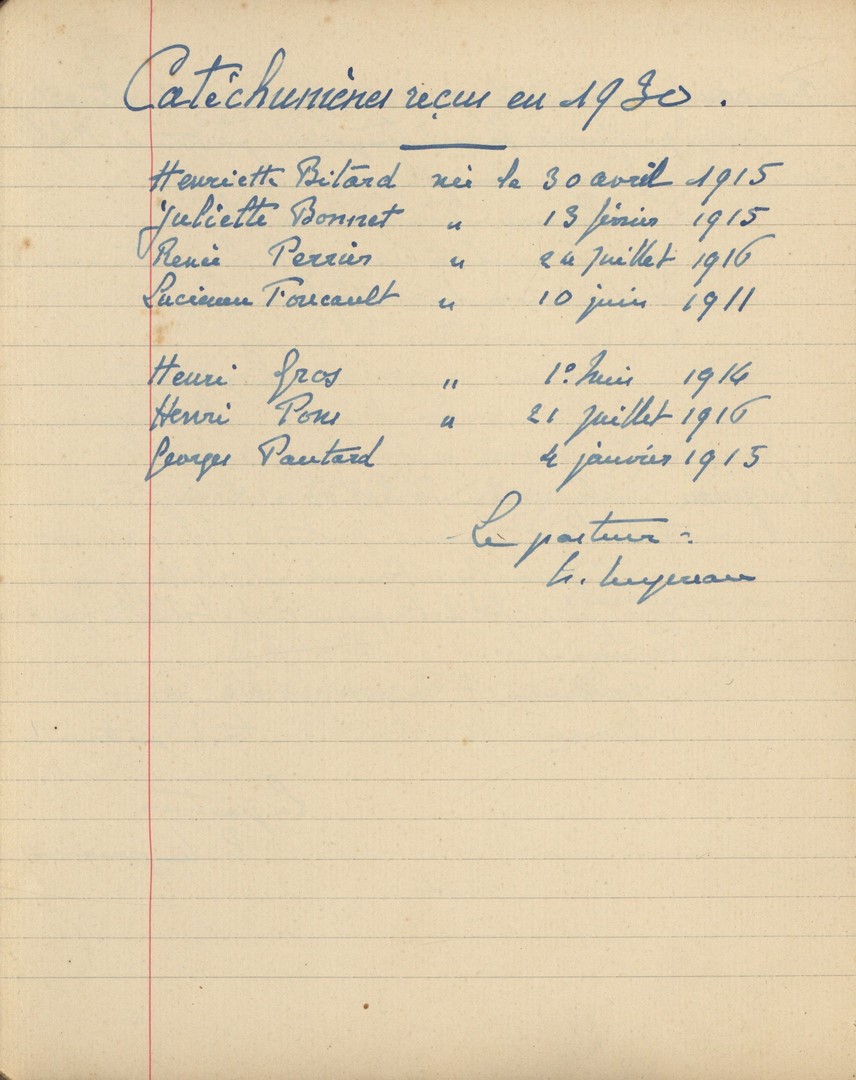 Catéchumènes reçus en 1930.
Henriette Bitard née le 30 avril 1915
Juliette Bonnet " 13 février 1915
Renée Perrier " 24 juillet 1916
Lucienne Foucault " 10 juin 1911
Henri Gros " 1° Juin 1914
Henri Pons " 21 juillet 1916
Georges Pautard 4 janvier 1915
Le pasteur :